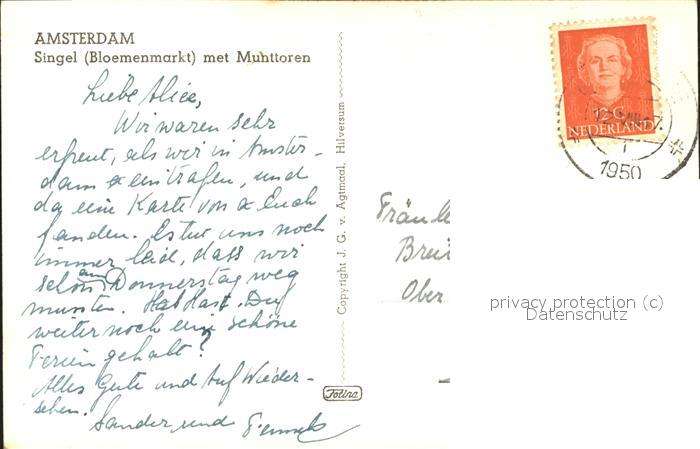 AMSTERDAM
Singel (Bloemenmarkt) met Munttoren
Liebe Alice,
Wir waren sehr
erfreut, als wir in Amster-
dam eintrafen, und
da eine Karte von Euch
fanden. Es tut uns noch
immer leid, dass wir
schon am Donnerstag weg
mussten. Hat Du
weiter noch eine schöne
Ferien gehabt?
Alles Gute und Auf Wieder-
sehen.
Sander und
Copyright J. G. v. Agtmaal, Hilversum
Fotina
NEDERLAND
1950
Fräule
Brei
Ober
privacy protection (c)
Datenschutz